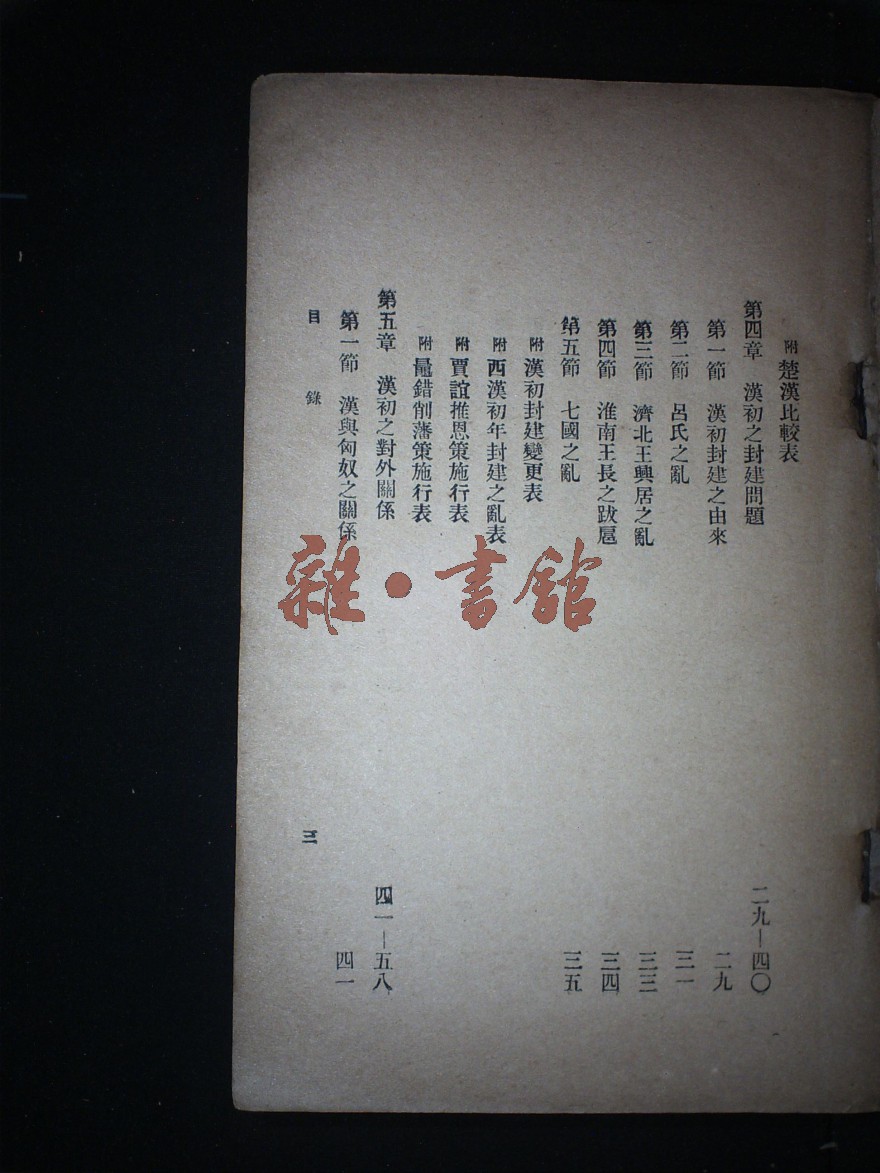 附 楚漢比較表
第四章 漢初之封建問題 二九—四〇
第一節 漢初封建之由來 二九
第二節 呂氏之亂 三一
第三節 濟北王興居之亂 三三
第四節 淮南王長之跋扈 三四
第五節 七國之亂 三五
附 漢初封建變更表
附 西漢初年封建之亂表
附 賈誼推恩策施行表
附 鼂錯削藩策施行表
第五章 漢初之對外關係 四一—五八
第一節 漢與匈奴之關係 四一
目錄 三
雜·書館